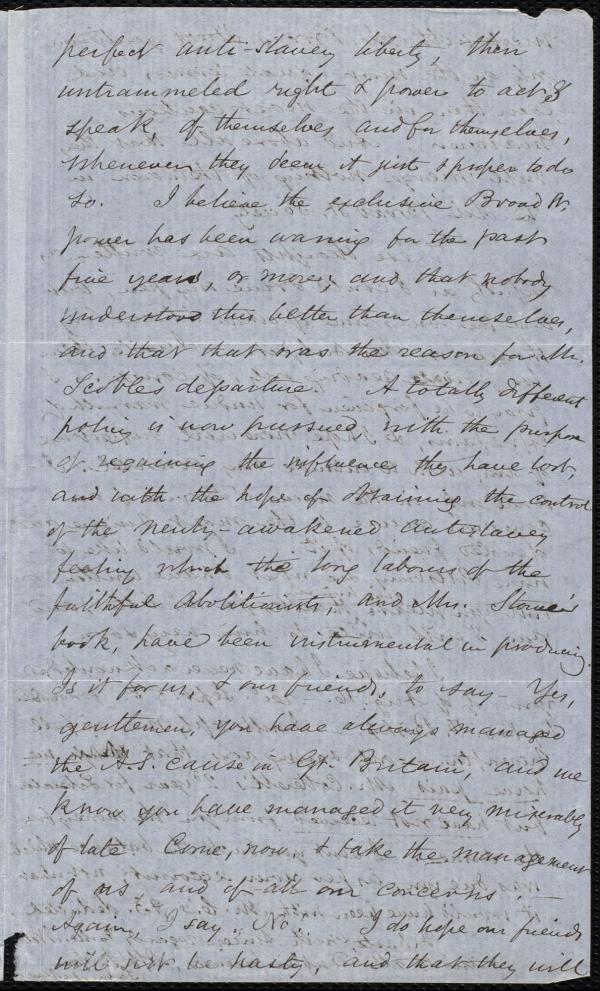 perfect anti-slavery liberty, their
untrammeled right & power to act &
speak, of themselves and for themselves,
whenever they deem it just & proper to do
so. I believe the exclusive Broad St.
power has been waning for the past
five years, or more; and that nobody
understood this better than themselves,
and that that was the reason for Mr.
Scoble's departure. A totally different
policy is now pursued, with the purpose
of regaining the influence they have lost,
and with the hope of obtaining the control
of the newly-awakened antislavery
feeling which the long labours of the
faithful Abolitionists, and Mrs. Stowe's
book, have been instrumental in producing.
Is it for us, & our friends, to say - Yes,
gentlemen, you have always managed
the A.S. cause in Gt. Britain, and we
know you have managed it very miserably
of late. Come, now, & take the management
of us, and of all our concerns.
Again, I say, No. I do hope our friends
will not be hasty, and that they will